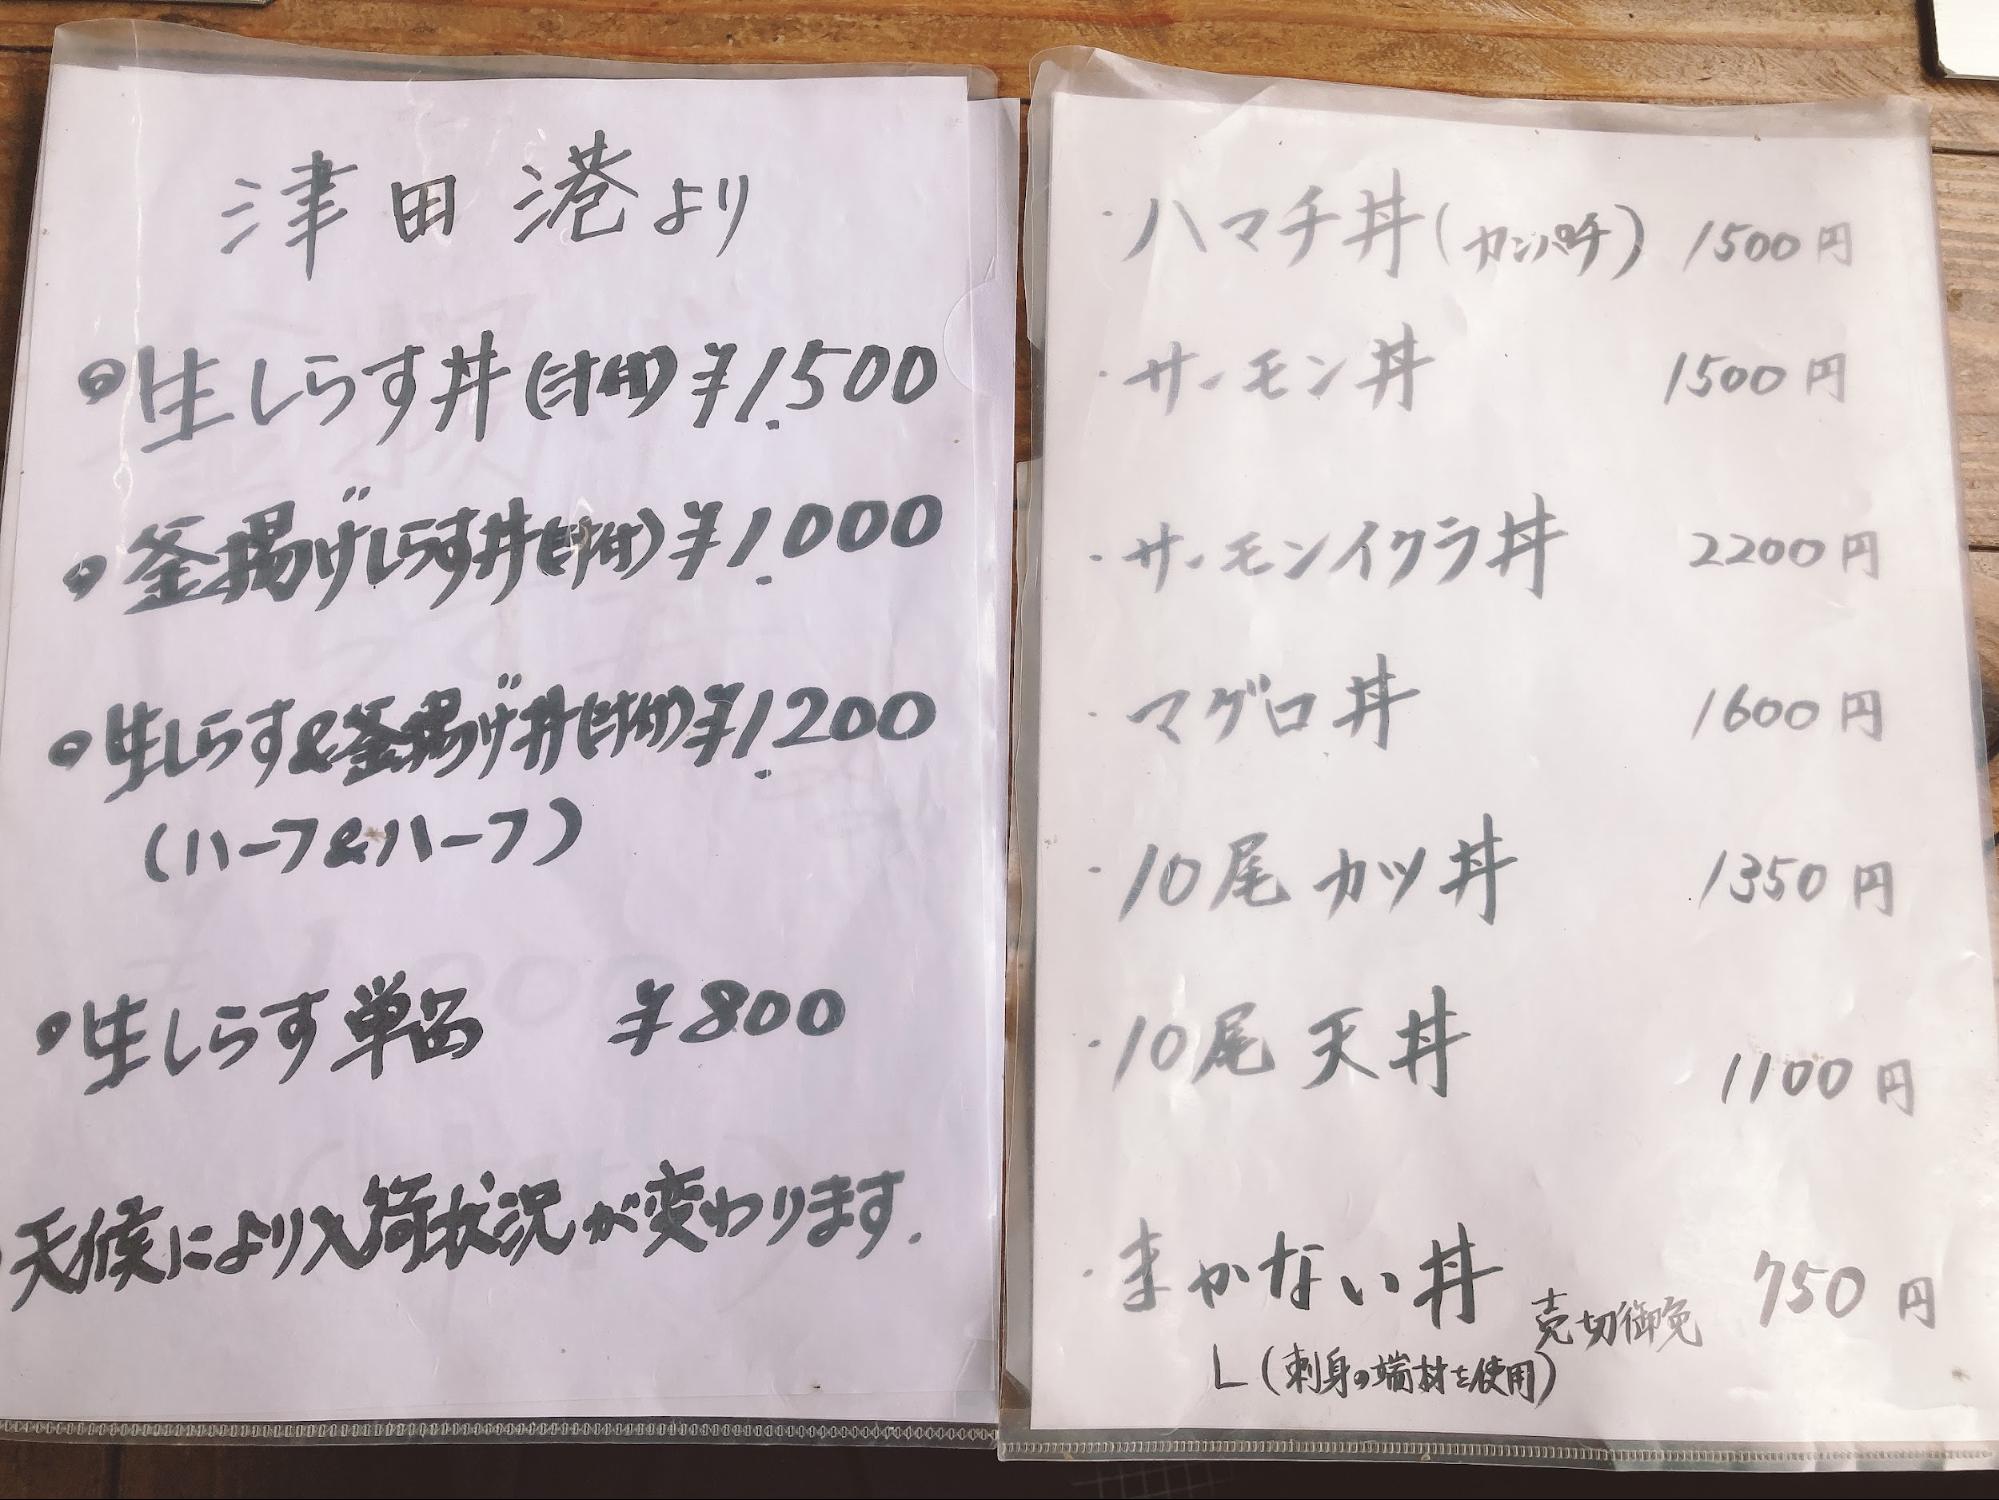 津田港より
生しらす丼(汁付)¥1.500
釜揚げしらす丼(汁付)¥1.000
生しらす&釜揚げ丼(汁付)¥1.200
(ハーフ&ハーフ)
生しらす単品 ¥800
天候により入荷状況が変わります.
・ハマチ丼(カンパチ) 1500円
・サーモン丼 1500円
・サーモンイクラ丼 2200円
・マグロ丼 1600円
・10尾カツ丼 1350円
・10尾天丼 1100円
・まかない丼 売切御免 750円
L(刺身の端材を使用)